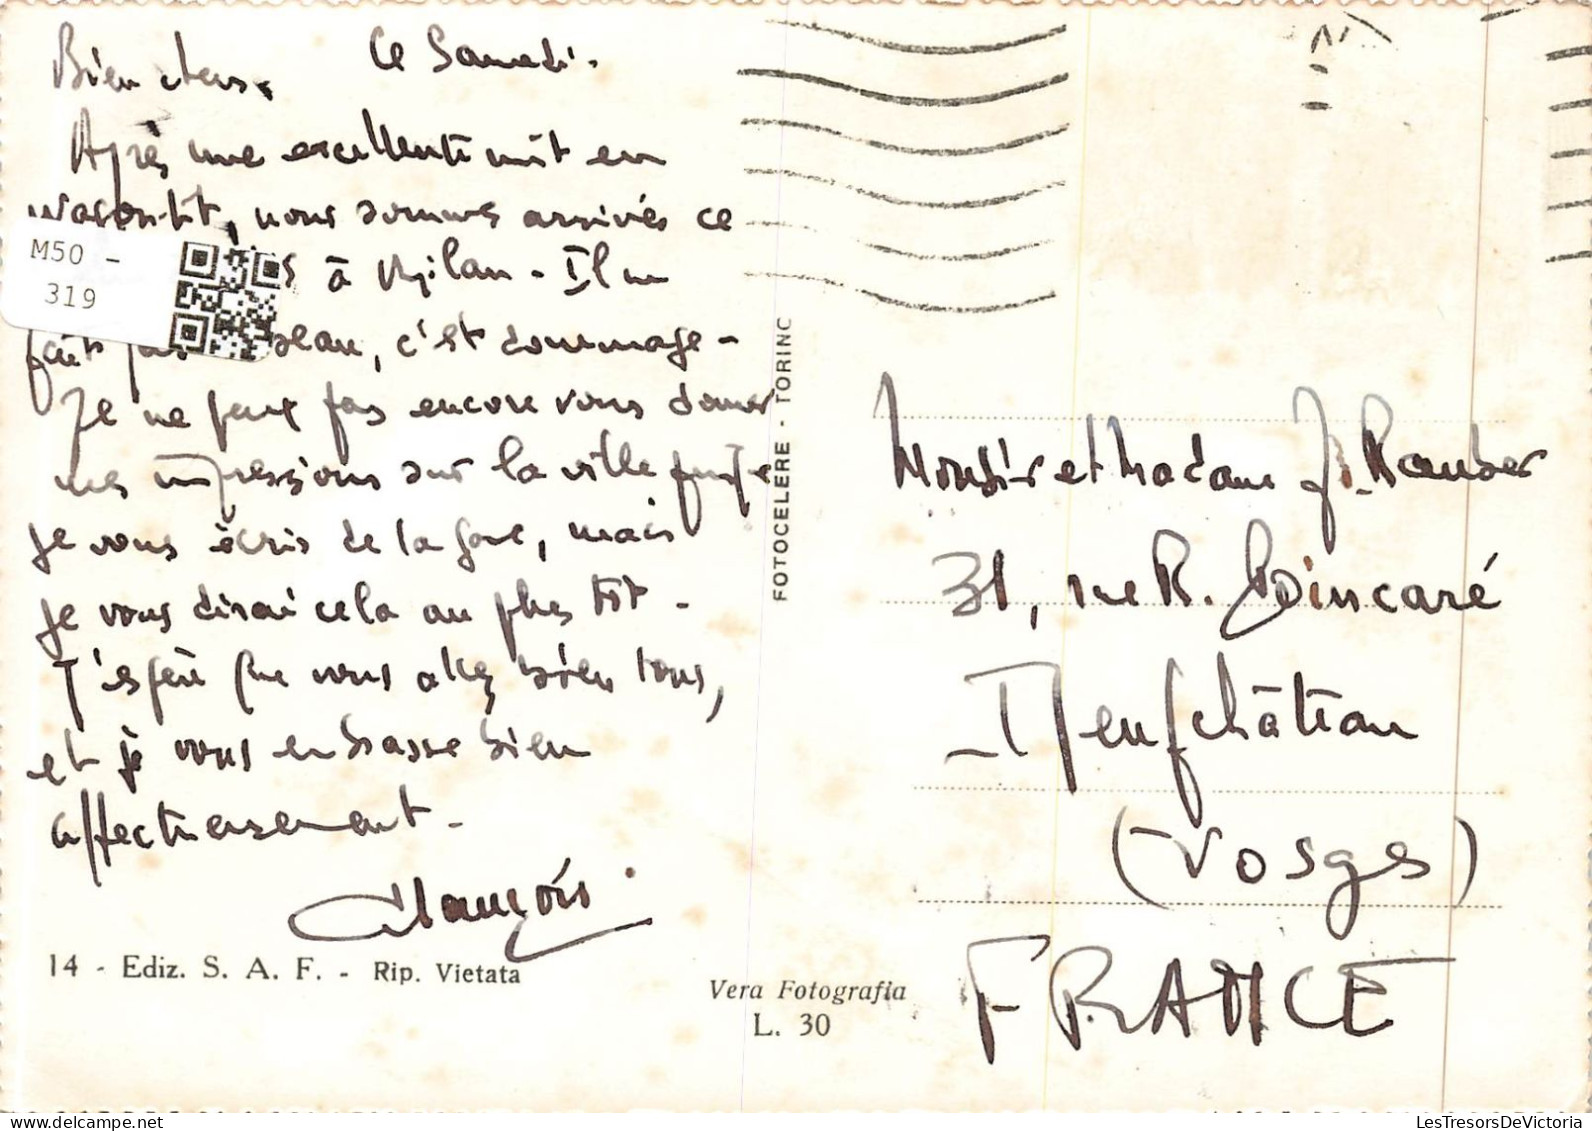 Bien chers.
Ce Samedi.
Après une excellente nuit en
wagon-lit, nous sommes arrivés ce
à Milan - Il ne
fait pas beau, c'est dommage -
Je ne peux pas encore vous donner
mes impressions sur la ville puisque
je vous écris de la gare, mais
je vous dirai cela au plus tôt -
J'espère que vous allez bien tous,
et je vous embrasse bien
affectueusement -
François
M50 -
319
14 - Ediz. S. A. F. - Rip. Vietata
Vera Fotografia
L. 30
FOTOCELERE - TORINO
Monsieur et Madame J.
31, rue R. Poincaré
Neufchâteau
(Vosges)
FRANCE
LesTresorsDeVictoria